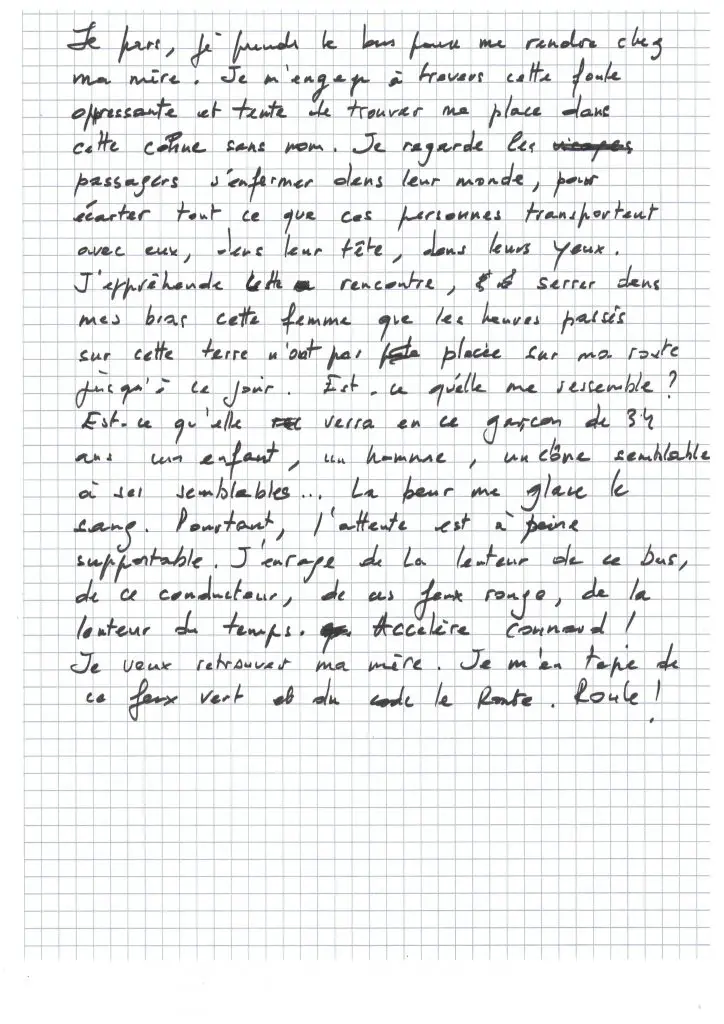 Je pars, je prends le bus pour me rendre chez
ma mère. Je m'engage à travers cette foule
oppressante et tente de trouver ma place dans
cette cohue sans nom. Je regarde les visages
passagers s'enfermer dans leur monde, pour
écarter tout ce que ces personnes transportent
avec eux, dans leur tête, dans leurs yeux.
J'appréhende cette rencontre, serrer dans
mes bras cette femme que les heures passés
sur cette terre n'ont pas placée sur ma route
jusqu'à ce jour. Est-ce qu'elle me ressemble ?
Est-ce qu'elle verra en ce garçon de 34
ans un enfant, un homme, un cône semblable
à ses semblables... La peur me glace le
sang. Pourtant, l'attente est à peine
supportable. J'enrage de la lenteur de ce bus,
de ce conducteur, de ces feux rouge, de la
lenteur du temps. Accelère connard !
Je veux retrouver ma mère. Je m'en tape de
ce feux vert et du code le Route. Roule !